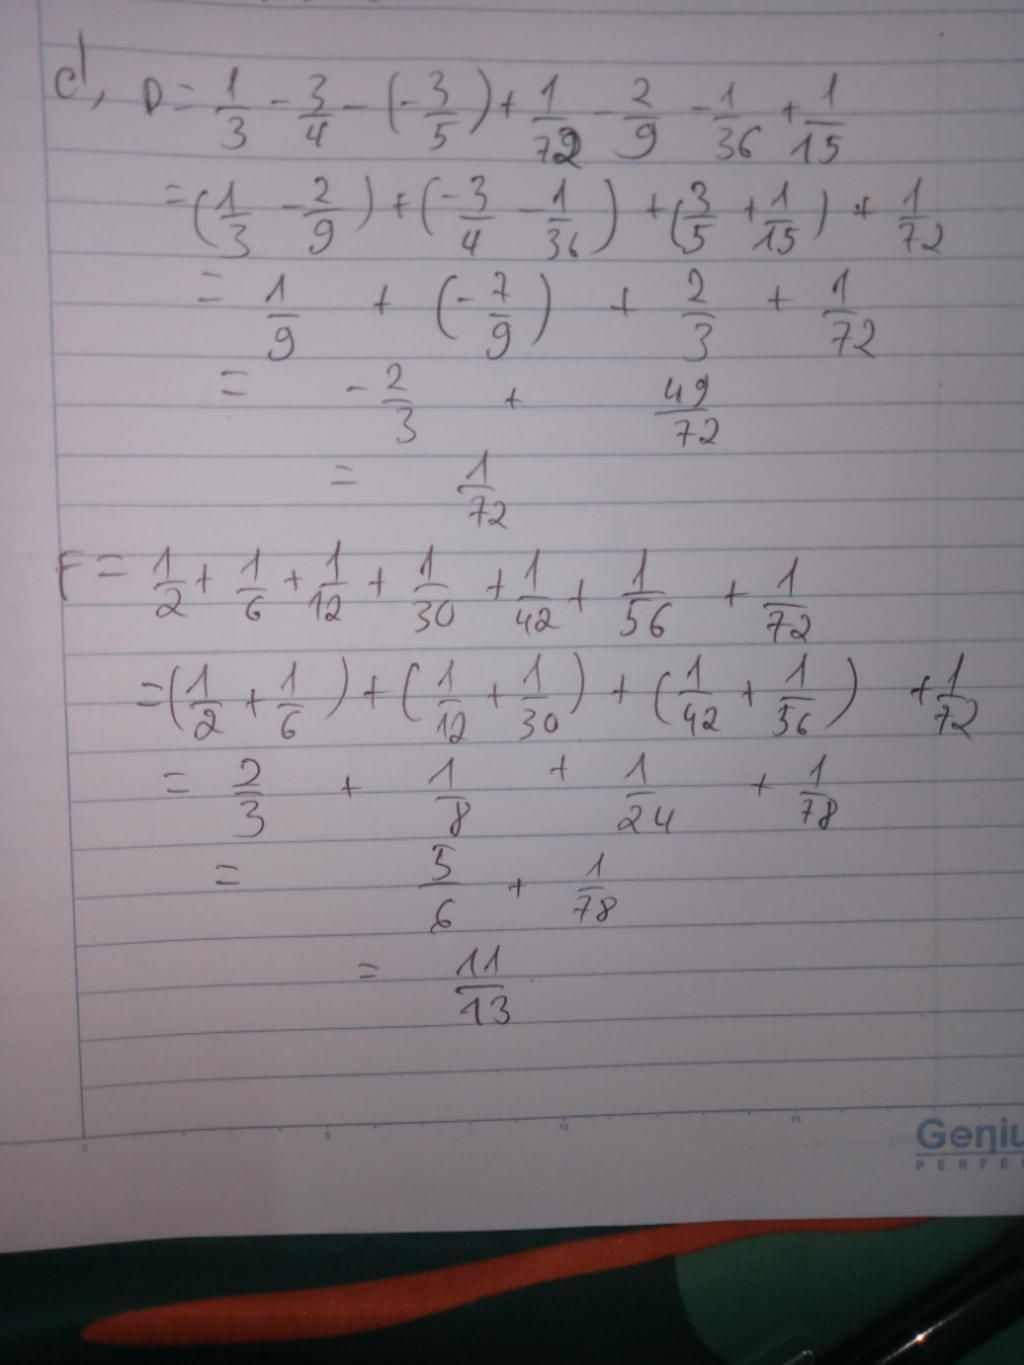 d, D = 1/3 - 3/4 - (-3/5) + 1/72 - 2/9 - 1/36 + 1/15
= (1/3 - 2/9) + (-3/4 - 1/36) + (3/5 + 1/15) + 1/72
= 1/9 + (-7/9) + 2/3 + 1/72
= -2/3 + 49/72
= 1/72
F = 1/2 + 1/6 + 1/12 + 1/30 + 1/42 + 1/56 + 1/72
= (1/2 + 1/6) + (1/12 + 1/30) + (1/42 + 1/56) + 1/72
= 2/3 + 1/8 + 1/24 + 1/78
= 5/6 + 1/78
= 11/13
0 5 10 15
Geniu
PERFE